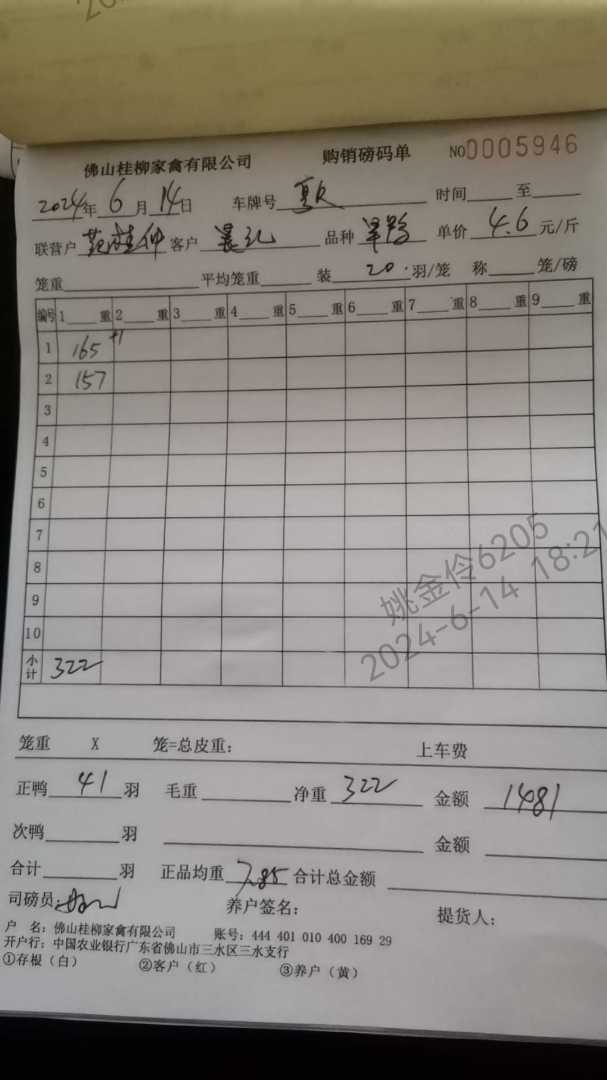 佛山桂柳家禽有限公司 购销磅码单 NO0005946
2024年 6 月 14日 车牌号 时间 至
联营户 客户 品种 单价 4.6 元/斤
笼重 平均笼重 装 20 羽/笼 称 笼/磅
编号 1 重 2 重 3 重 4 重 5 重 6 重 7 重 8 重 9 重
1 165 +1
2 157
3
4
5
6
7
8
9
10
小计 322
姚金伶6205
2024-6-14 18:21
笼重 X 笼=总皮重: 上车费
正鸭 41 羽 毛重 净重 322 金额 1481
次鸭 羽 金额
合计 羽 正品均重 7.85 合计总金额
司磅员 养户签名: 提货人:
户 名: 佛山桂柳家禽有限公司 账号: 444 401 010 400 169 29
开户行: 中国农业银行广东省佛山市三水区三水支行
①存根(白) ②客户(红) ③养户(黄)